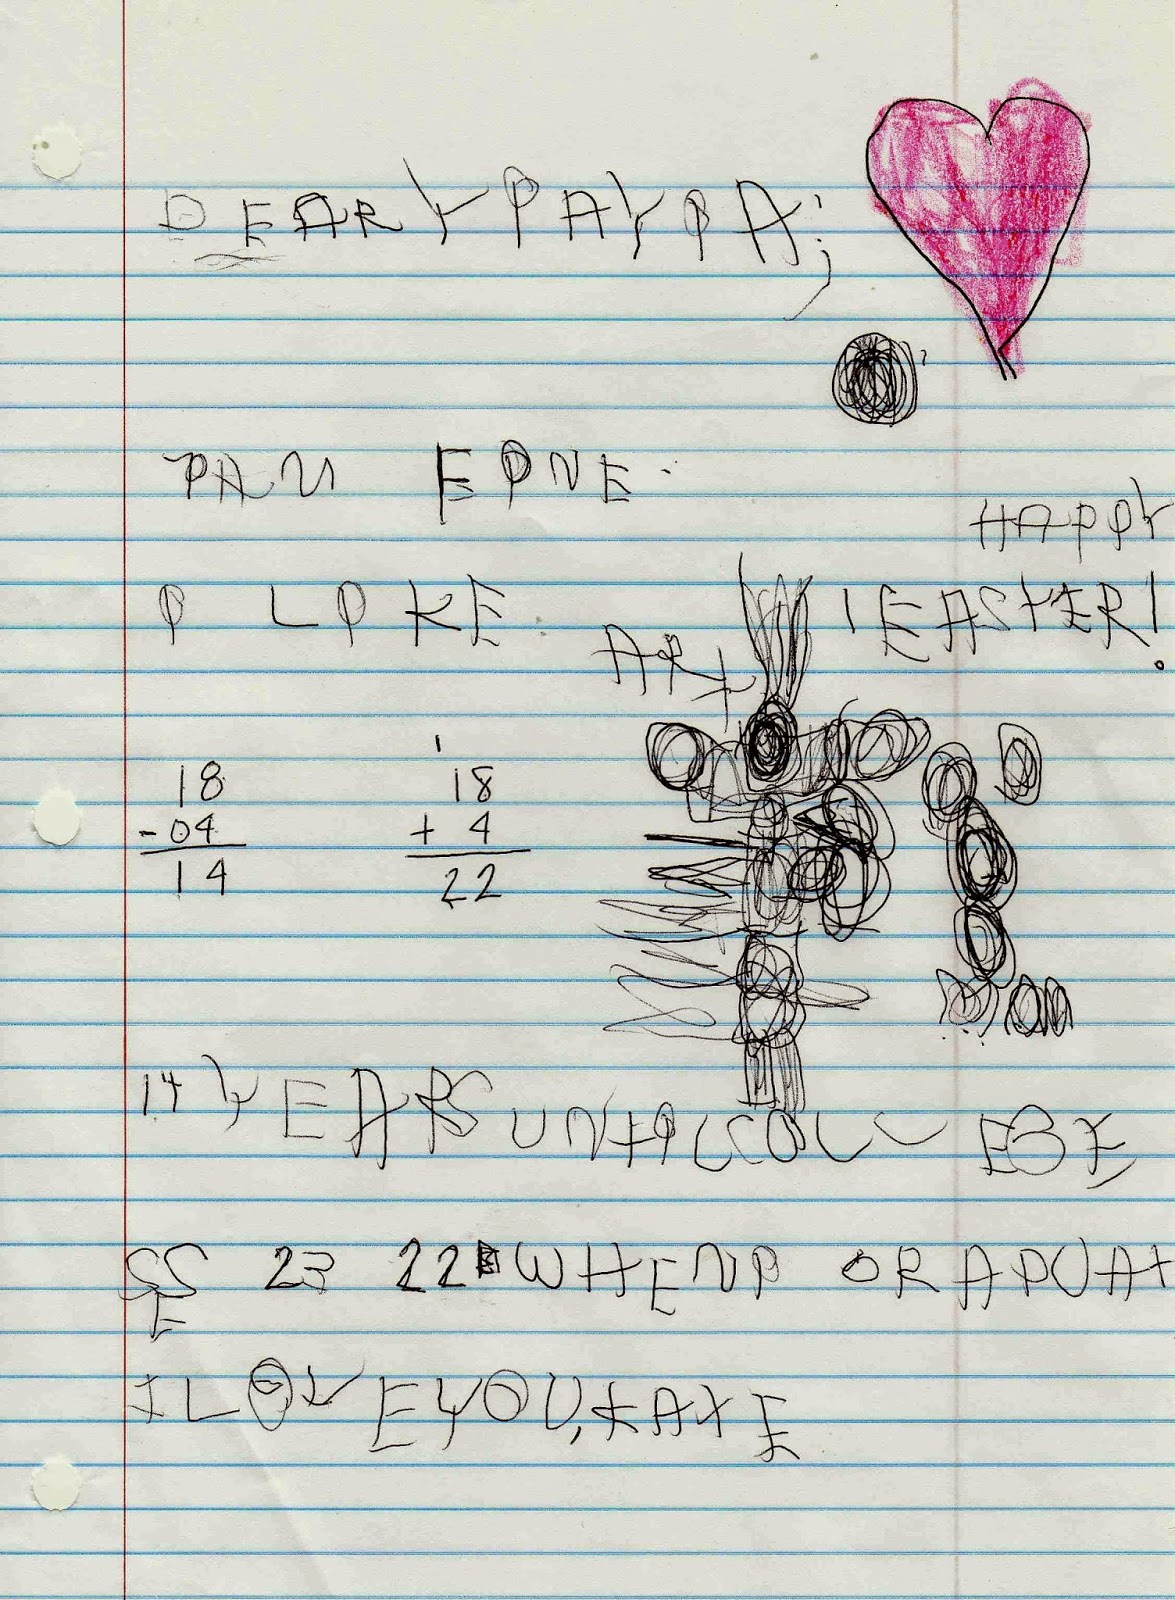 DEAR PAYPA,
PAN EPNE.
HAPPY
P LPKE
ART
EASTER!
18
- 04
14
1
18
+ 4
22
14 YEARS UNTPL COLLEGE
23 22 WHEN P GRADUAT
E
I LOVE YOU, KATE